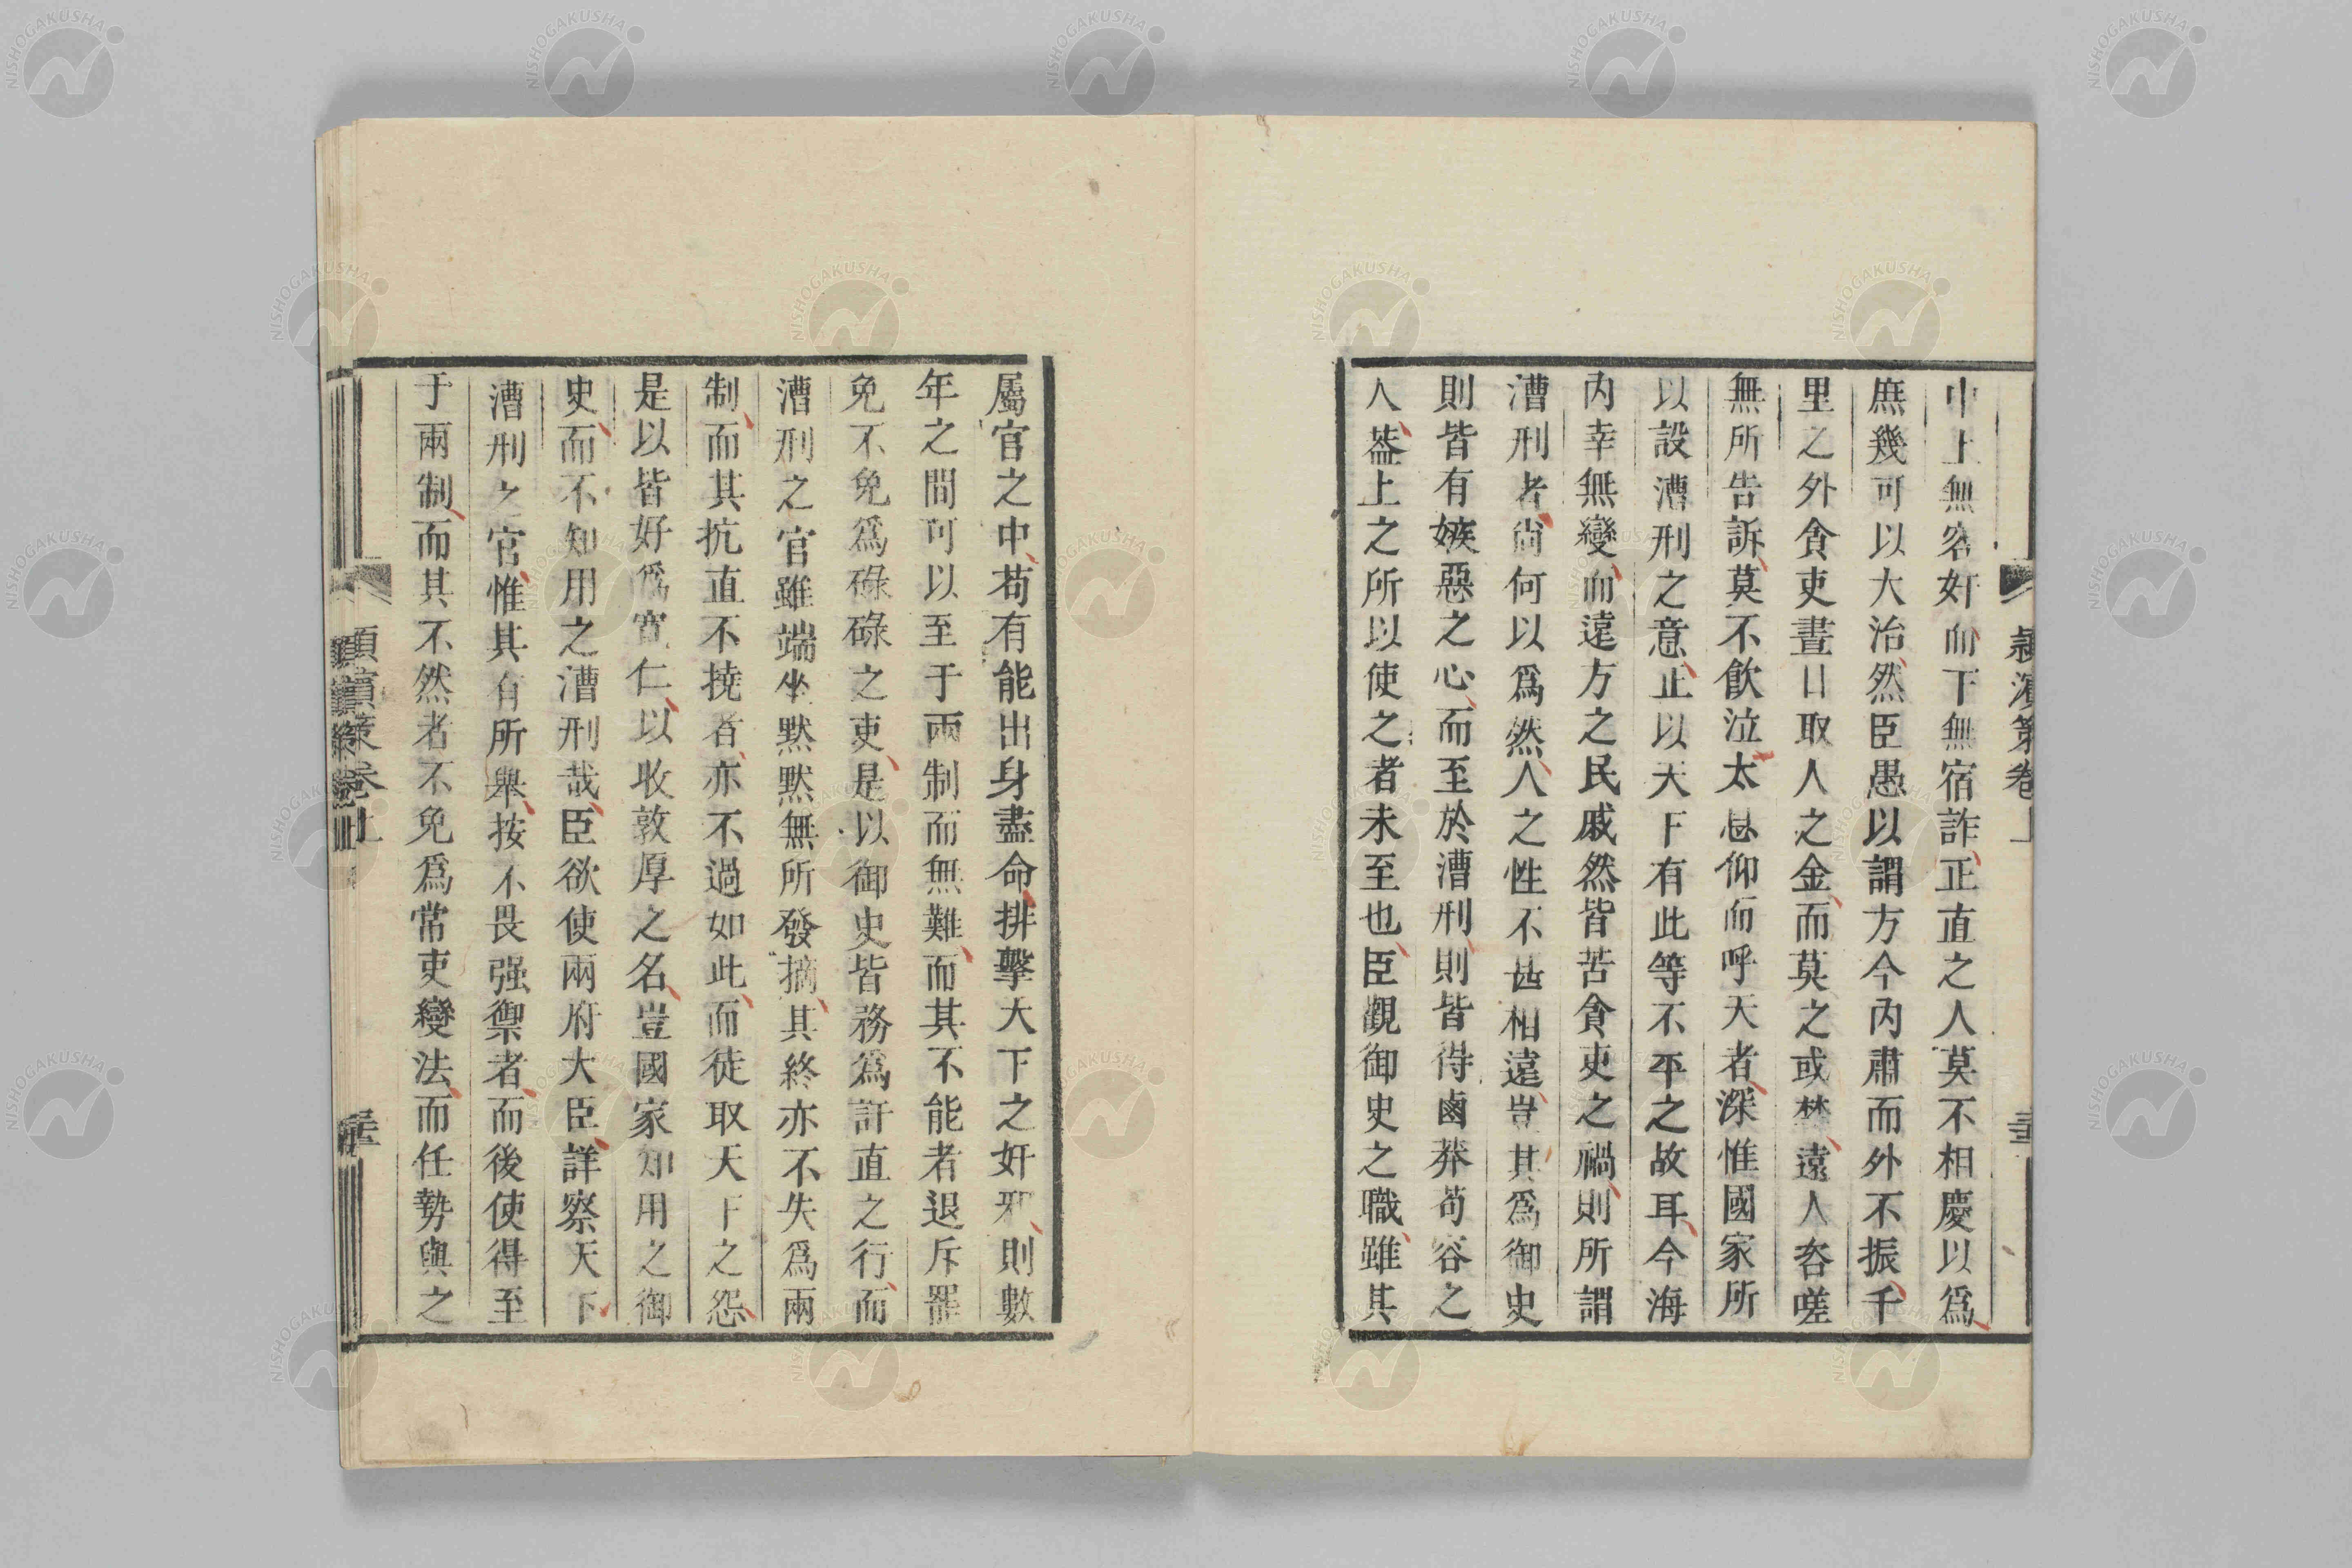 中上無容奸而下無宿詐正直之人莫不相慶以爲
庶幾可以大治然臣愚以謂方今内肅而外不振千
里之外貪吏晝日取人之金而莫之或禁遠人咨嗟
無所告訴莫不飲泣太息仰而呼天者深惟國家所
以設漕刑之意止以天下有此等不平之故耳今海
内幸無變而遠方之民戚然皆苦貪吏之禍則所謂
漕刑者尚何以爲然人之性不甚相遠豈其爲御史
則皆有嫉惡之心而至於漕刑則皆得鹵莽苟容之
人葢上之所以使之者未至也臣觀御史之職雖其
屬官之中苟有能出身盡命排擊大下之奸邪則數
年之間可以至于兩制而無難而其不能者退斥罷
免不免爲碌碌之吏是以御史皆務爲訐直之行而
漕刑之官雖端坐默默無所發摘其終亦不失爲兩
制而其抗直不撓者亦不過如此而徒取天下之怨
是以皆好爲寬仁以收敦厚之名豈國家知用之御
史而不知用之漕刑哉臣欲使兩府大臣詳察天下
漕刑之官惟其有所舉按不畏强禦者而後使得至
于兩制而其不然者不免爲常吏變法而任勢與之
潁濱策卷上
NISHOGAKUSHA